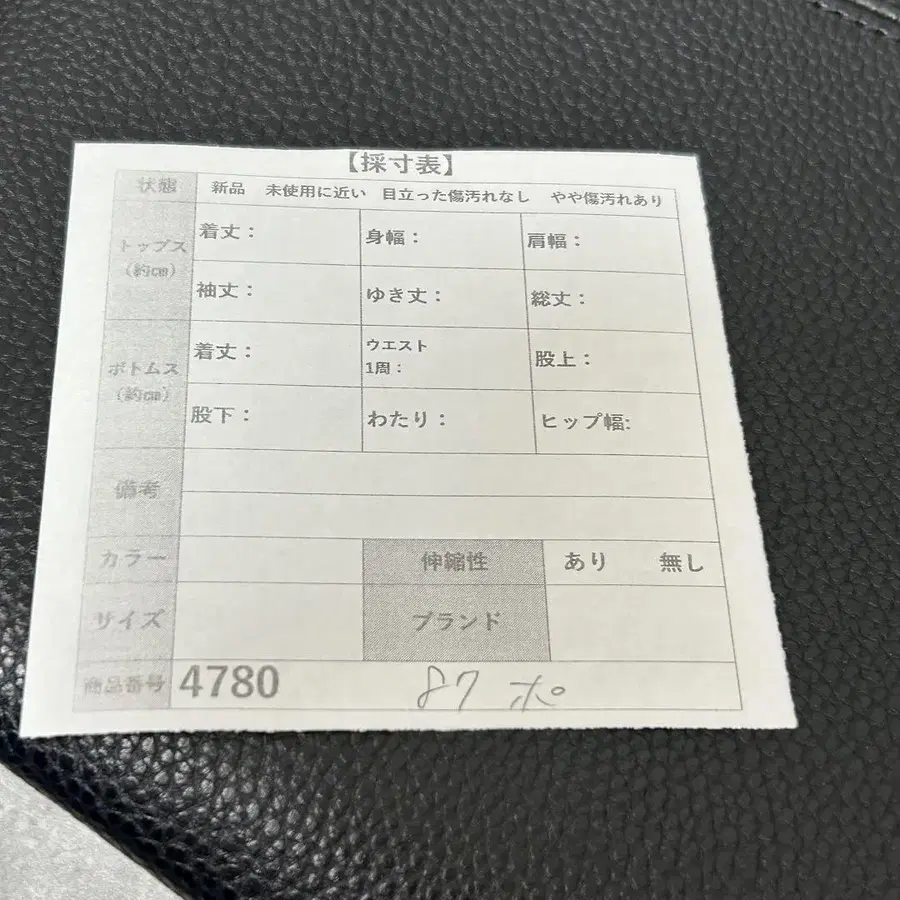 【採寸表】
状態 新品 未使用に近い 目立った傷汚れなし やや傷汚れあり
トップス 着丈： 身幅： 肩幅：
（約㎝） 袖丈： ゆき丈： 総丈：
ボトムス 着丈： ウエスト 股上：
1周：
（約㎝） 股下： わたり： ヒップ幅:
備考
カラー 伸縮性 あり 無し
サイズ ブランド
商品番号 4780 87 ポ